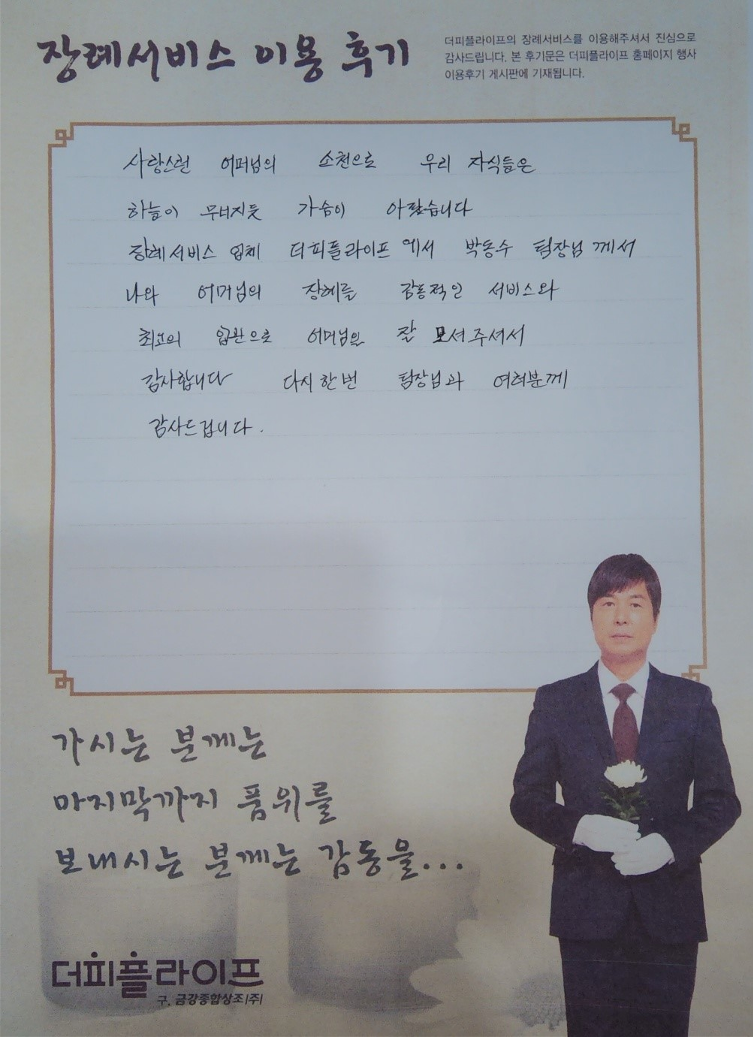 장례서비스 이용 후기
더피플라이프의 장례서비스를 이용해주셔서 진심으로
감사드립니다. 본 후기문은 더피플라이프 홈페이지 행사
이용후기 게시판에 기재됩니다.
사랑스런 어머님의 소천으로 우리 자식들은
하늘이 무너지듯 가슴이 아팠습니다
장례서비스 업체 더피플라이프에서 박동수 팀장님께서
나와 어머님의 장례를 감동적인 서비스와
최고의 입관으로 어머님을 잘 모셔주셔서
감사합니다 다시한번 팀장님과 여러분께
감사드립니다.
가시는 분께는
마지막까지 품위를
보내시는 분께는 감동을...
더피플라이프
구. 금강종합상조(주)